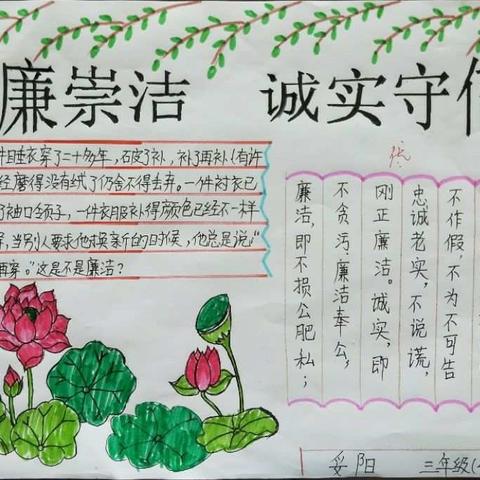 廉崇洁 诚实守信
件睡衣穿了二十多年，破了补，补了再补（有许
经磨得没有绒了仍舍不得丢弃。一件衬衣已
了袖口领子，一件衣服补得颜色已经不一样
当别人要求他换新衣的时候，他总是说“
再穿。”这是不是廉洁？
廉洁，即不损公肥私；
不贪污廉洁奉公，
刚正廉洁。诚实，即
忠诚老实，不说谎，
不作假，不为不可告
妥阳 三年级（